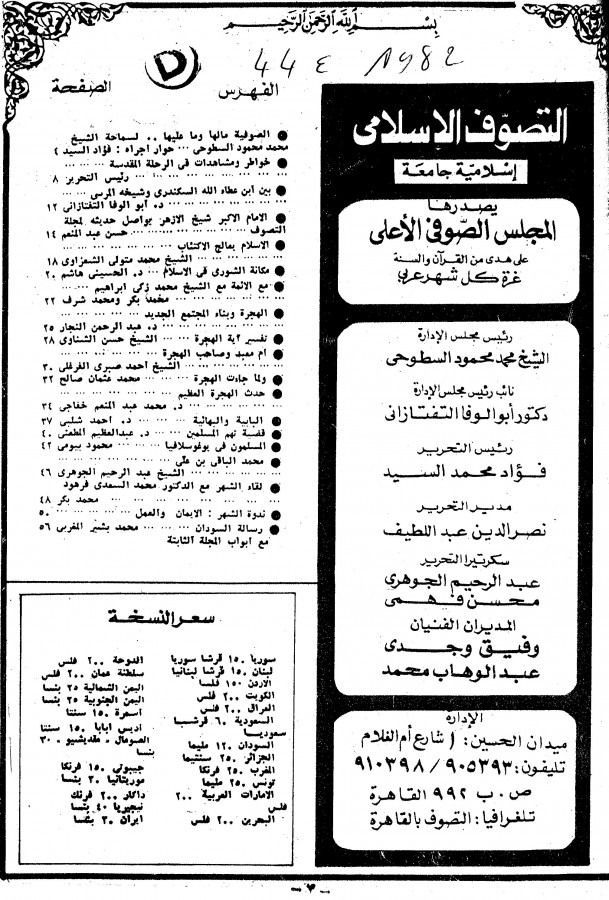 بسم الله الرحمن الرحيم
44ε 1982
D
الفهرس
الصفحة
● الصوفية مالها وما عليها .. لسماحة الشيخ
محمد محمود السطوحي ... حوار اجراه : فؤاد السيد ٤
● خواطر ومشاهدات في الرحلة المقدسة ... ...
... ... ... ... ... رئيس التحرير ٨
● بين ابن عطاء الله السكندرى وشيخه المرسى ...
... ... ... ... د. أبو الوفا التفتازانى ١٢
● الامام الاكبر شيخ الازهر يواصل حديثه لمجلة
التصوف ... ... ... ... حسن عبد المنعم ١٤
● الاسلام يعالج الاكتئاب ... ... ...
... ... ... ... الشيخ محمد متولى الشعراوى ١٨
● مكانة الشورى فى الاسلام ... د. الحسينى هاشم ٢٠
● مع الائمة مع الشيخ محمد زكى ابراهيم ... ...
... ... ... ... محمد بكر ومحمد شرف ٢٢
● الهجرة وبناء المجتمع الجديد ... ... ...
... ... ... ... د. عبد الرحمن النجار ٢٥
● تفسير آية الهجرة ... ... الشيخ حسن الشناوى ٢٨
● ام معبد وصاحب الهجرة ... ... ...
... ... ... الشيخ أحمد صبرى الفرغلى ٣٠
● ولما جاءت الهجرة ... ... محمد عثمان صالح ٣٢
● حدث الهجرة العظيم ... ... ...
... ... ... د. محمد عبد المنعم خفاجى ٣٤
● البابية والبهائية ... ... د. احمد شلبى ٣٧
● قضية تهم المسلمين ... د. عبدالعظيم المطعنى ٤٠
● المسلمون فى يوغوسلافيا ... ... محمود بيومى ٤٢
● محمد الباقى بن على ... ... ...
... ... ... الشيخ عبد الرحيم الجوهرى ٤٦
● لقاء الشهر مع الدكتور محمد السعدى فرهود
... ... ... ... ... محمد بكر ٤٨
● ندوة الشهر : الايمان والعمل ... ... ٥٠
● رسالة السودان ... ... محمد بشير المغربى ٥٦
مع ابواب المجلة الثابتة
التصوف الإسلامى
إسلامية جامعة
يصدرها
المجلس الصوفى الأعلى
على هدى من القرآن والسنة
غرة كل شهر عربى
رئيس مجلس الإدارة
الشيخ محمد محمود السطوحى
نائب رئيس مجلس الإدارة
دكتور أبو الوفا التفتازانى
رئيس التحرير
فؤاد محمد السيد
مدير التحرير
نصر الدين عبد اللطيف
سكرتيرا التحرير
عبد الرحيم الجوهرى
محسن فهمى
المديران الفنيان
وفيق وجدى
عبد الوهاب محمد
الإدارة
ميدان الحسين: ١ شارع أم الغلام
تليفون: ٩٠٥٣٩٣ / ٩١٠٣٩٨
ص . ب ٩٩٢ القاهرة
تلغرافيا: التصوف بالقاهرة
سعر النسخة
سوريا ١٥٠ قرشا سوريا
لبنان ١٥٠ قرشا لبنانيا
الأردن ١٥٠ فلسا
الكويت ٢٠٠ فلس
العراق ٢٠٠ فلس
السعودية ٦٠ قرشا
سعوديا
السودان ١٢٠ مليما
الجزائر ٢٥٠ سنتيما
المغرب ٢٥٠ فرنكا
تونس ٢٥٠ مليما
الامارات العربية ٢٠٠
فلس
البحرين ٢٠٠ فلس
الدوحة ٢٠٠ فلس
سلطنة عمان ٢٠٠ فلس
اليمن الشمالية ٢٥ بنسا
اليمن الجنوبية ٢٥ بنسا
أسمرة ١٥٠ سنتا
أديس أبابا ١٥٠ سنتا
الصومال - مقديشيو ٣٠
بنسا
جيبوتى ١٥٠ فرنكا
موريتانيا ٣٠ بنسا
داكار ٢٠٠ فرنك
نيجيريا ٤٠ بنسا
ايران ٣٠ بنسا
- ٣ -